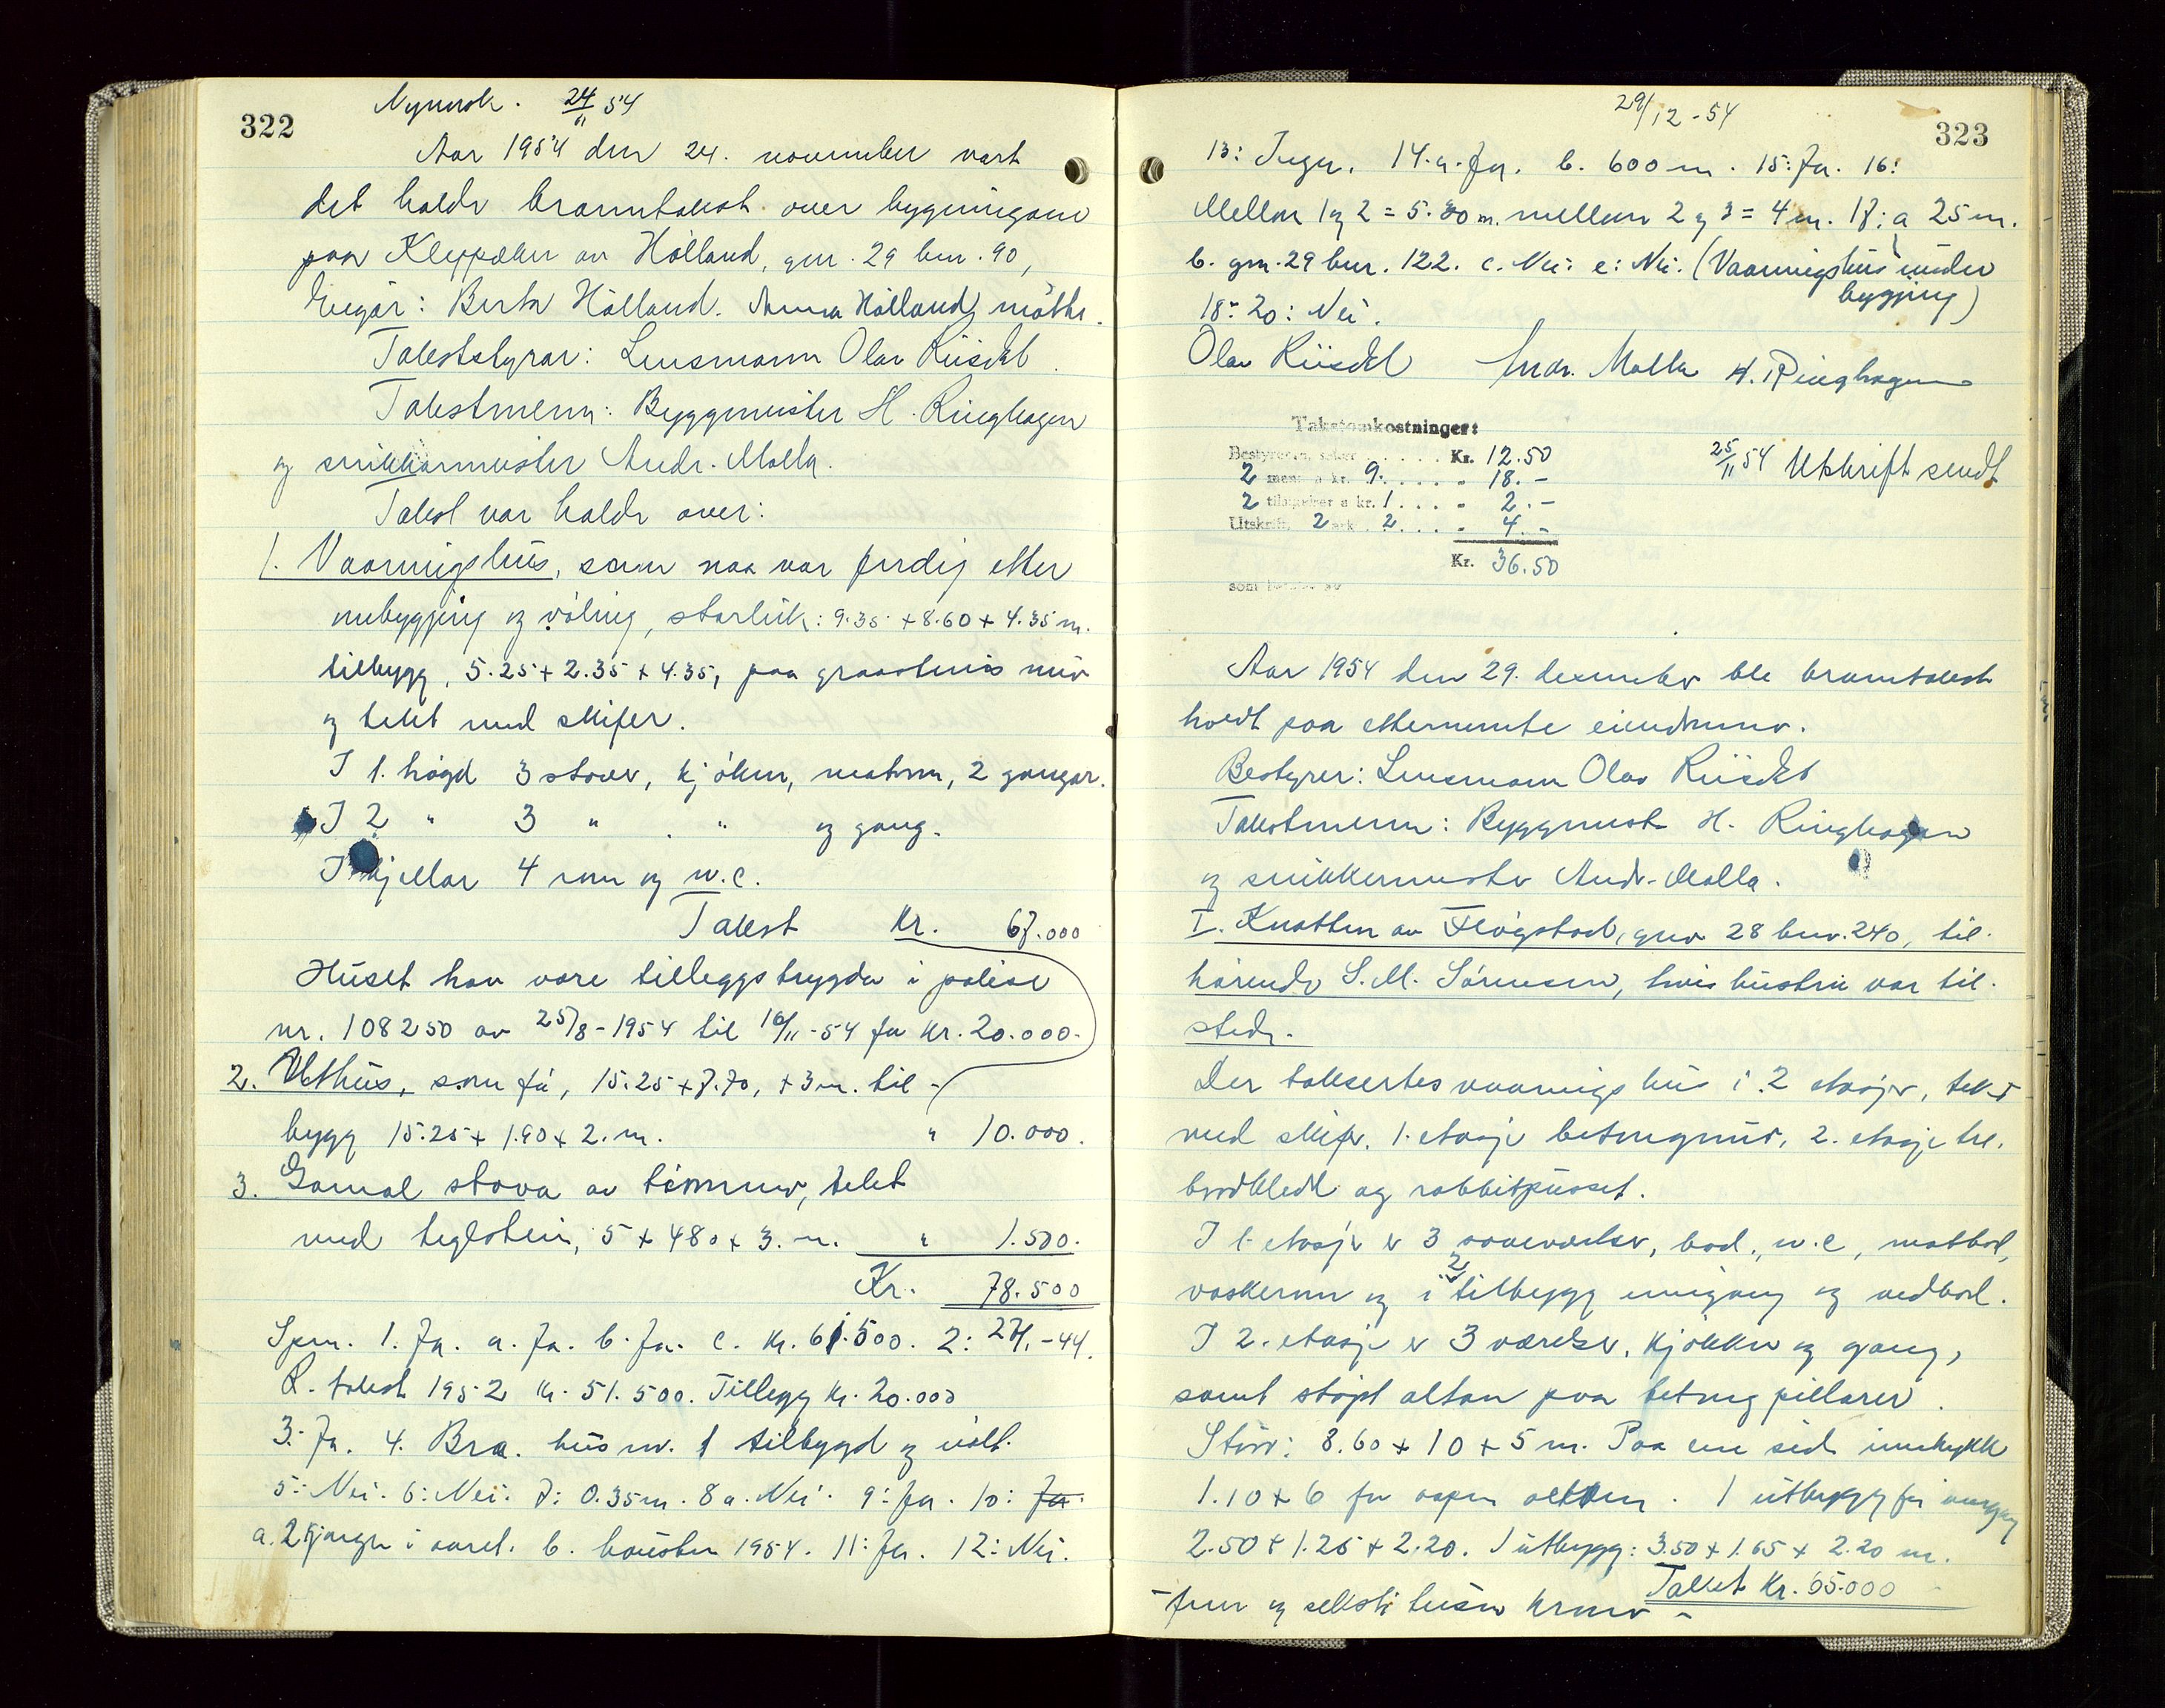 322
Nynorsk. 24/11 54
Aar 1954 den 24. november vart
det halde branntakst over bygningane
paa Kleppeker av Hålland, gnr. 29 bnr. 90,
Eigar: Berta Hålland. Anna Hålland møtte.
Takststyrar: Lensmann Olav Riisdal.
Takstmenn: Byggmeister H. Ringhagen
og snikkarmeister Andr. Malla.
Takst var halde over:
1. Vaaningshus, som naa var ferdig etter
umbygging og vøling, storleik: 9.35 + 8.60 + 4.35 m.
tilbygg, 5.25 + 2.35 + 4.35, paa graasteins mur
og tekt med skifer.
I 1. høgd 3 stover, kjøken, matrom, 2 gangar.
I 2 " 3 " . " og gang.
I kjellar 4 rom og w.c.
Takst Kr. 67.000
Huset har vore tilleggstrygda i polise
nr. 108250 av 25/8-1954 til 16/11-54 for Kr. 20.000.
2. Uthus, som før, 15.25 + 7.70, + 3 m. til-
bygg 15.25 + 1.90 + 2. m. " 10.000.
3. Gamal stova av tømmer, tekt
med teglstein, 5 + 480 + 3. m. " 1.500.
Kr. 78.500
Spm. 1. Ja. a. Ja. b. Ja. c. Kr. 61.500. 2: 24.-44.
R. takst 1952 kr. 51.500. Tillegg Kr. 20.000
3. Ja. 4. Bra. hus nr. 1 tilbygd og vølt.
5: Nei. 6: Nei. 7: 0.35 m. 8 a. Nei. 9: Ja. 10: Ja.
a. 2 gjenger i aaret. b. hausten 1954. 11: Ja. 12: Nei.
29/12-54
323
13: Ingen. 14. a. Ja. b. 600 m. 15: Ja. 16:
Mellom 1 og 2 = 5.30 m. mellom 2 og 3 = 4 m. 17: a 25 m.
b. gnr. 29 bnr. 122. c. Nei: e: Nei. (Vaaningshus under
bygging)
18: 20: Nei.
Olav Riisdal Andr. Malla H. Ringhagen
Takstomkostninger:
Bestyreren, Kr. 12.50
2 menn a kr. 9. . . . . - 18. -
2 a kr. 1 . . . - 2. -
Utskrift. 2 ark . 2 . . . . - 4. -
Kr. 36.50
25/11 54 Utskrift sendt
Aar 1954 den 29. desember ble branntakst
holdt paa etternevnte eiendommer.
Bestyrer: Lensmann Olav Riisdal
Takstmenn: Byggmest. H. Ringhagen
og snikkermester Andr. Malla.
I. Knatten av Fløgstad, gnr 28 bnr. 240, til-
hørende S. M. Sørensen, hvis hustru var til-
stede.
Der takseres vaaningshus i 2 etasjer, tekt
med skifer. 1. etasje betongmur, 2. etasje tre,
bordkledt og rabbitpusset.
I 1. etasje er 3 soveværelser, bad., w.c, matbod,
vaskerum og i 2 tilbygg inngang og vedbod.
I 2. etasje er 3 værelser, kjøkken og gang,
samt støpt altan paa betong pillarer.
Størr: 8.60 + 10 + 5 m. Paa ene side innebykk
1.10 + 6 for aapen altan. 1 utbygg for inngang
2.50 + 1.25 + 2.20. 1 utbygg: 3.50 + 1.65 + 2.20 m.
Takst Kr. 65.000